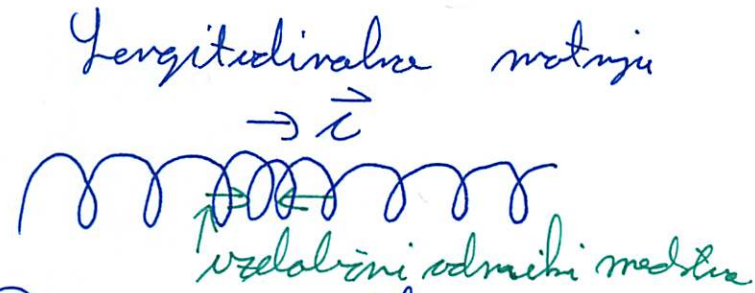 Longitudinalna motnja
→ c⃗
vzdolžni odmiki medstva